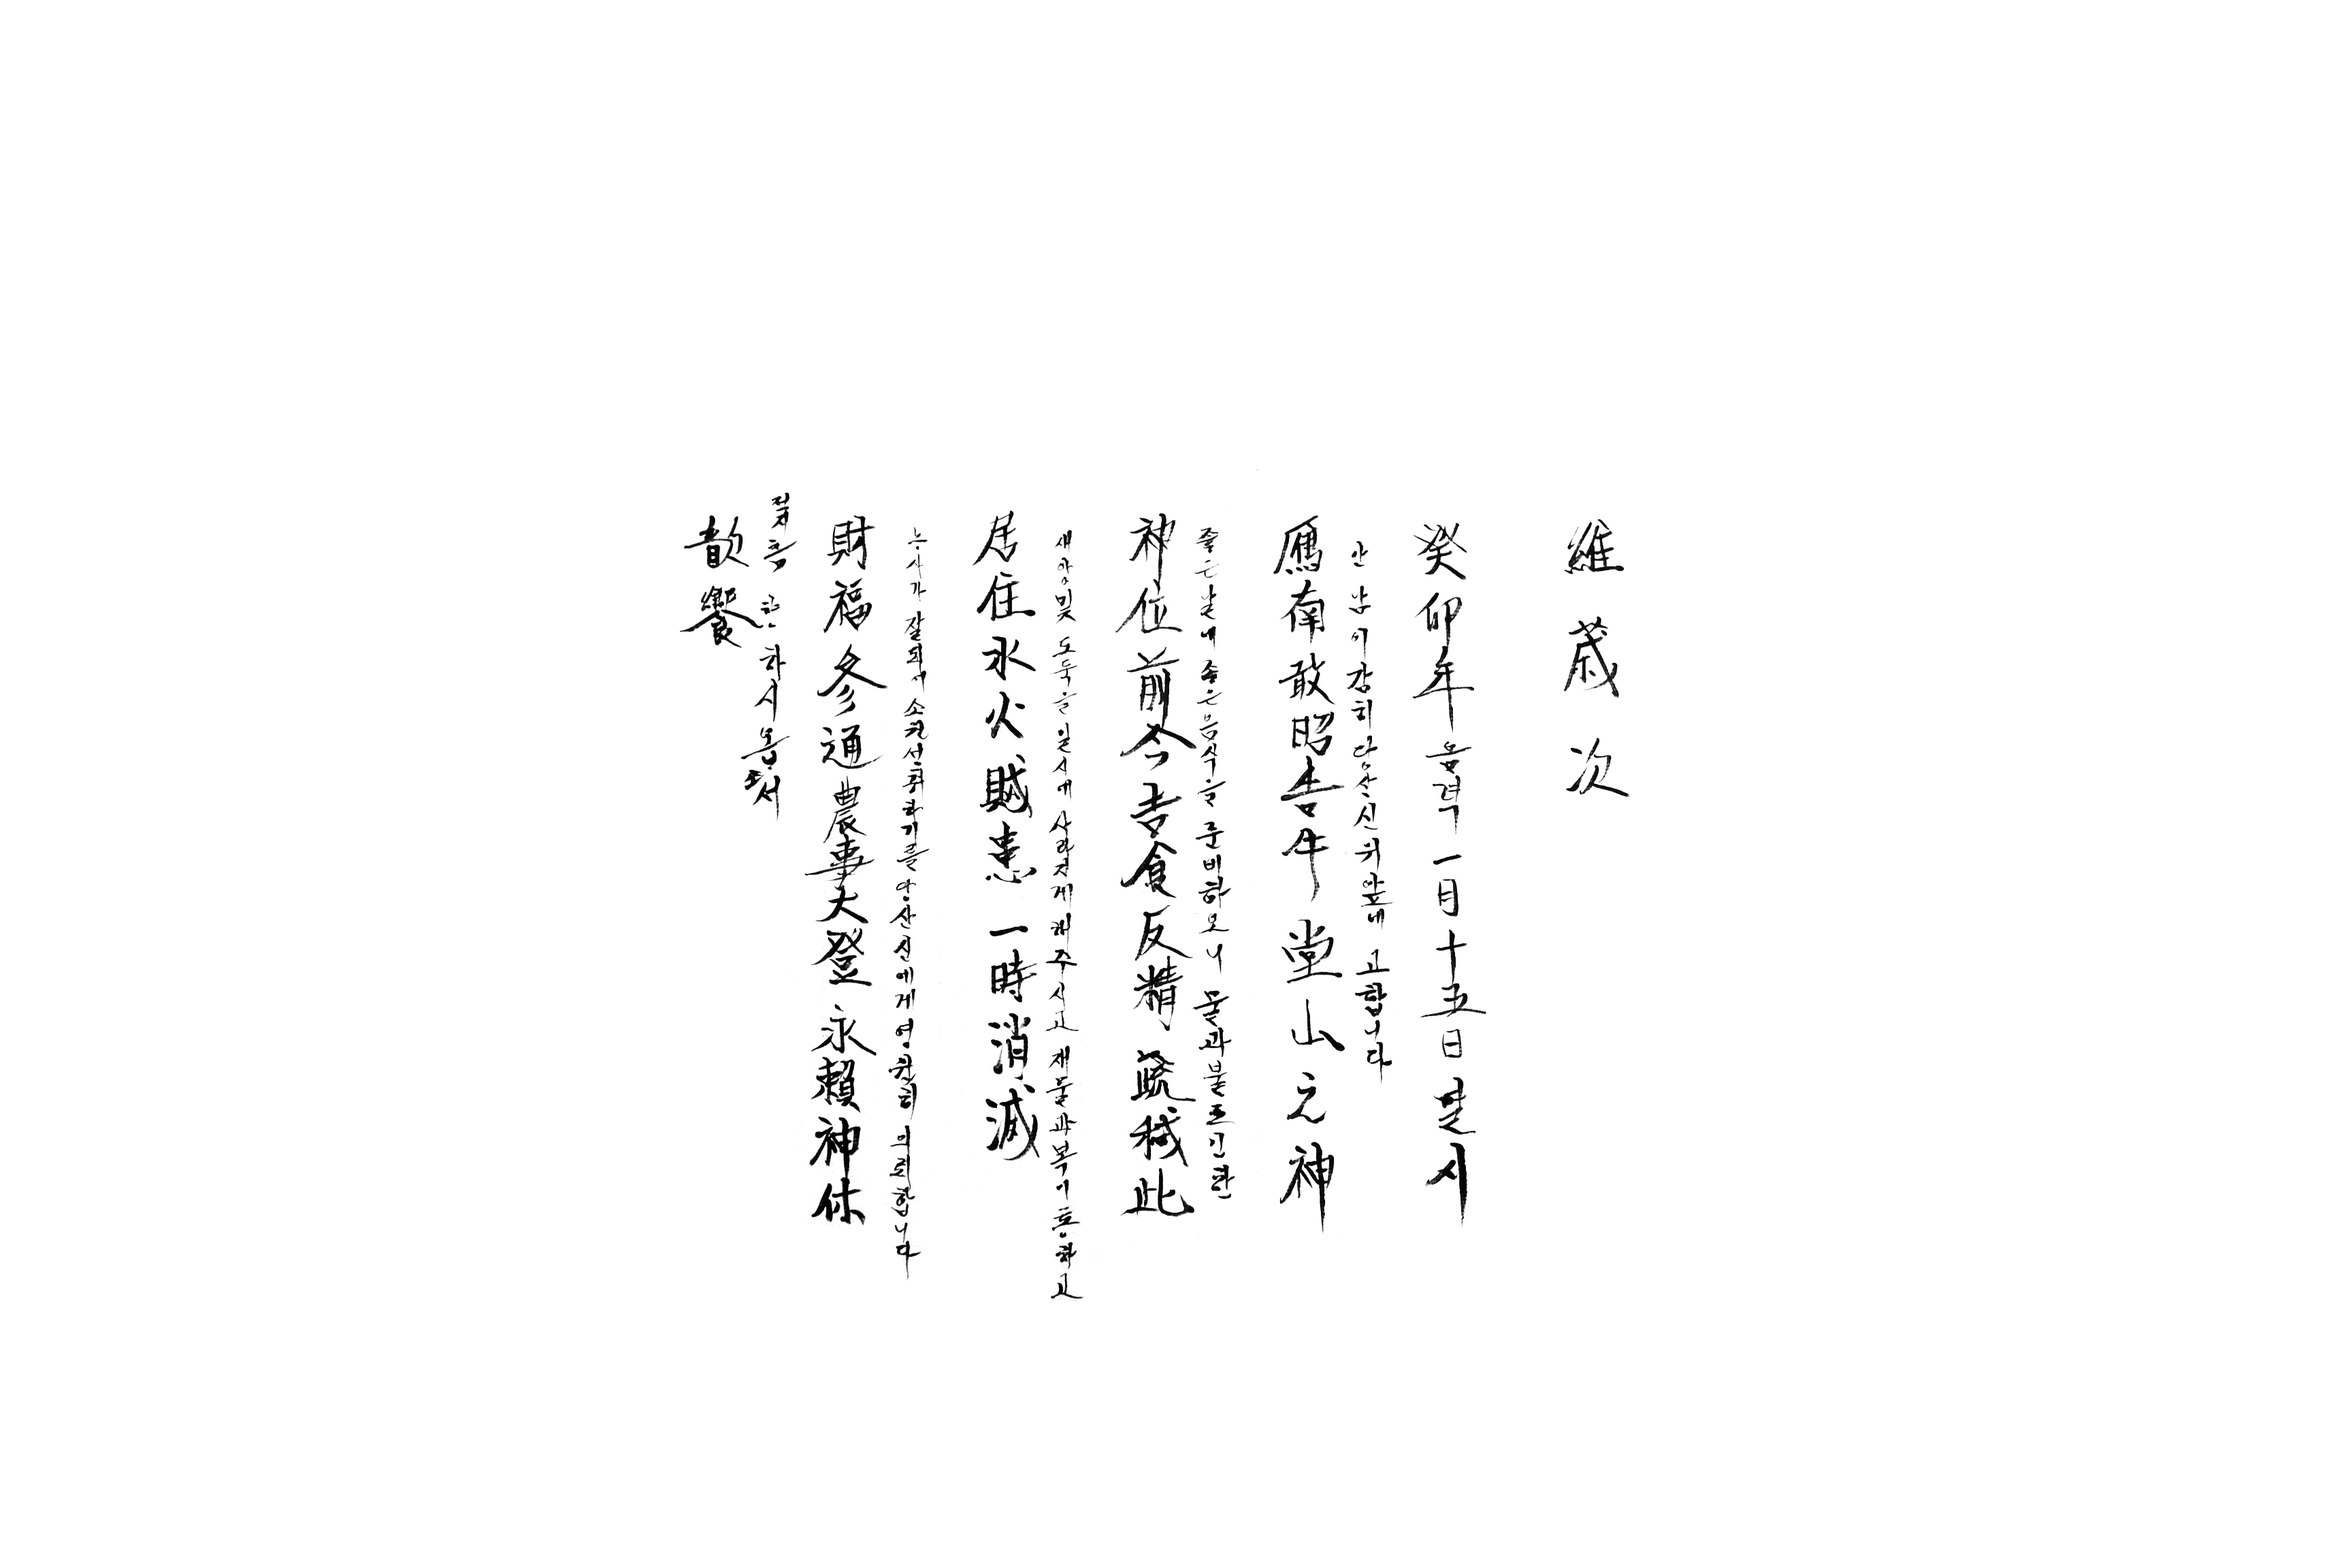 維歲次
癸卯年 음력 一月十五日 밤시
안남이 감히 당산신위 앞에 고합니다
鴈南敢昭告于堂山之神
좋은날에 좋은음식을 준비하오니 물과불 또인한
神位前今吉食反精蔬 此
재앙및 도둑을 일시에 사라지게 해주시고 재물과복이 통하고
居住水火賊患一時消滅
농사가 잘되서 소원성취하기를 당산신에게 영원히 의뢰합니다
財福冬通農事大登永賴神休
하시옵소서
歆饗